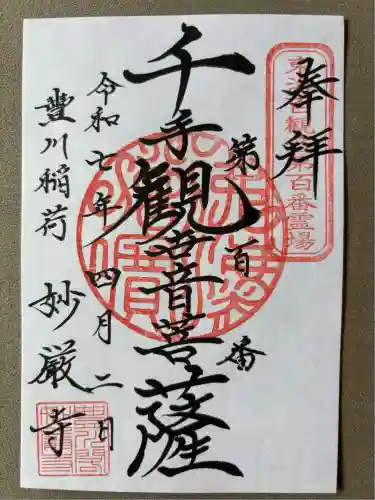 奉拝
東海百観音第百番霊場
第百番
千手観世音菩薩
令和七年四月二日
豊川稲荷 妙厳寺